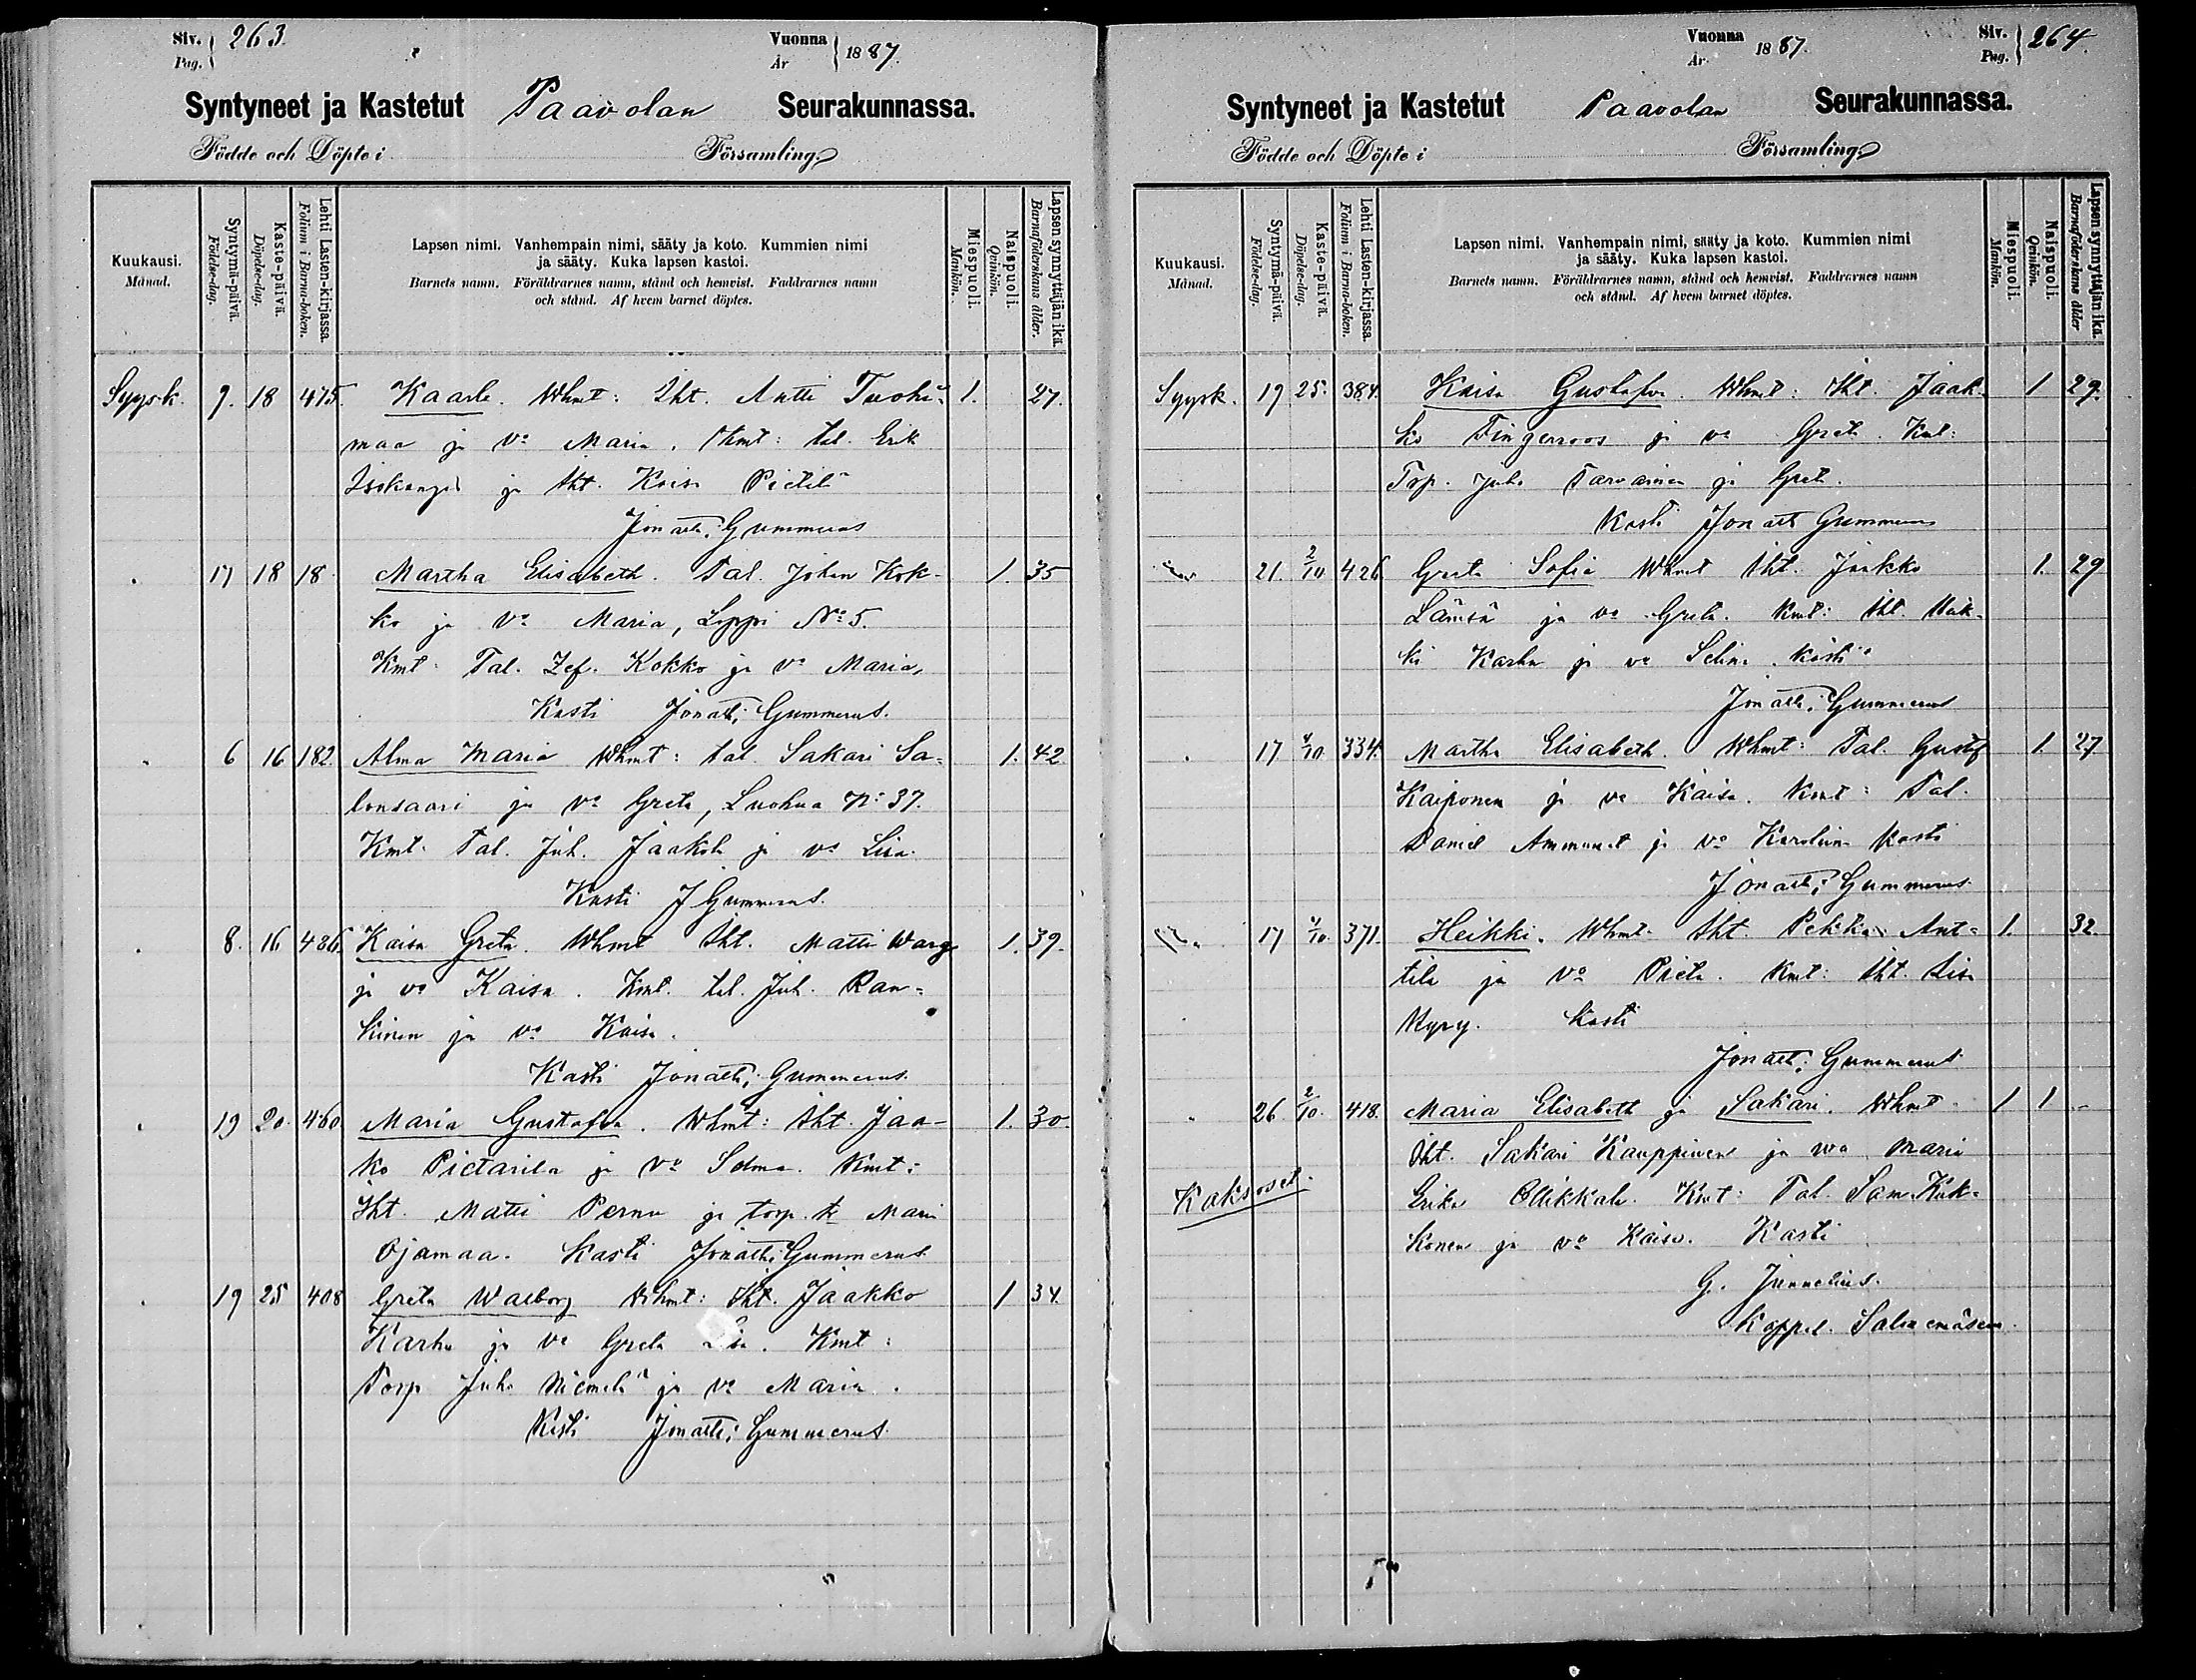 Siv. 263.
Pag.
Vuonna 1887.
År
Syntyneet ja Kastetut Paavolan Seurakunnassa.
Födde och Döpte i Församling
Kuukausi.
Månad.
Syntymä-päivä.
Födelse-dag.
Kaste-päivä.
Döpelse-dag.
Lehti Lasten-kirjassa.
Folium i Barna-boken.
Lapsen nimi. Vanhempain nimi, sääty ja koto. Kummien nimi
ja sääty. Kuka lapsen kastoi.
Barnets namn. Föräldrarnes namn, stånd och hemvist. Faddrarnes namn
och stånd. Af hvem barnet döptes.
Miespuoli.
Mankön.
Naispuoli.
Qvinkön.
Lapsen synnyttäjän ikä.
Barnaföderskans ålder.
Syysk. 7. 18 475. Kaarle. Whmt: Iht. Antti Tuohi- 1. 27.
maa ja vo Maria. Kmt: tal. Erik
ja Iht. Kaisa Pietilä
Jonath. Gummerus
17 18 18 Martha Elisabeth. Tal. Johan Kok- 1. 35
ko ja vo Maria, Lappi No 5.
Kmt: Tal. Zef. Kokko ja vo Maria,
Kasti Jonath. Gummerus.
6 16 182 Alma Maria Whmt: tal. Sakari Sa- 1. 42
lonsaari ja vo Greta, Luohua No 37.
Kmt. Tal. Juh. Jaakola ja vo Liisa.
Kasti J Gummerus.
8. 16 486. Kaisa Greta. Whmt Iht. Matti Warg 1. 39.
ja vo Kaisa. Kmt. tal. Juh. Ran-
kinen ja vo Kaisa.
Kasti Jonath. Gummerus.
19 20. 460. Maria Gustafva. Whmt: Iht. Jaa- 1. 30.
ko Pietarila ja vo Selma. Kmt:
Iht. Matti Pernu ja torp. tr Maria
Ojamaa. Kasti Jonath. Gummerus
19 25 408 Greta Walborg Whmt: Iht. Jaakko 1 34.
Karhu ja vo Greta Liisa. Kmt:
Torp Juho Niemelä ja vo Maria.
Kasti Jonath. Gummerus.
Vuonna 1887.
År
Siv. 264.
Pag.
Syntyneet ja Kastetut Paavolan Seurakunnassa.
Födde och Döpte i Församling
Kuukausi.
Månad.
Syntymä-päivä.
Födelse-dag.
Kaste-päivä.
Döpelse-dag.
Lehti Lasten-kirjassa.
Folium i Barna-boken.
Lapsen nimi. Vanhempain nimi, sääty ja koto. Kummien nimi
ja sääty. Kuka lapsen kastoi.
Barnets namn. Föräldrarnes namn, stånd och hemvist. Faddrarnes namn
och stånd. Af hvem barnet döptes.
Miespuoli.
Mankön.
Naispuoli.
Qvinkön.
Lapsen synnyttäjän ikä.
Barnaföderskans ålder
Syysk. 19 25. 384. Kaisa Gustafva. Whmt: Iht. Jaak- 1 29.
ko Fingerroos ja vo Greta. Kmt:
Torp. Juho Tarvainen ja Greta.
Kasti Jonath Gummerus
21. 2/10 426 Greta Sofia Whmt Iht. Jaakko 1. 29
Lämsä ja vo Greta. Kmt: Iht.
Karhu ja vo Selina. Kasti
Jonath. Gummerus
17 4/10 334. Martha Elisabeth. Whmt: Tal. Gustaf 1. 27
Kaiponen ja vo Kaisa. Kmt: Tal.
Daniel Ammunet ja vo Karoliina Kasti
Jonath. Gummerus.
17 4/10. 371. Heikki. Whmt. Iht. Pekka Ant- 1. 32.
tila ja vo Kmt: Iht. Liisa
Kypy. Kasti
Jonath. Gummerus
26. 2/10. 418. Maria Elisabeth ja Sakari. Whmt. 1 1 -
Iht. Sakari Kauppinen ja wo Maria
Kaksoset. Erika Ollikkala. Kmt: Tal. Sam.
konen ja vo Kaisa. Kasti
G. Junnelius.
Kappal.